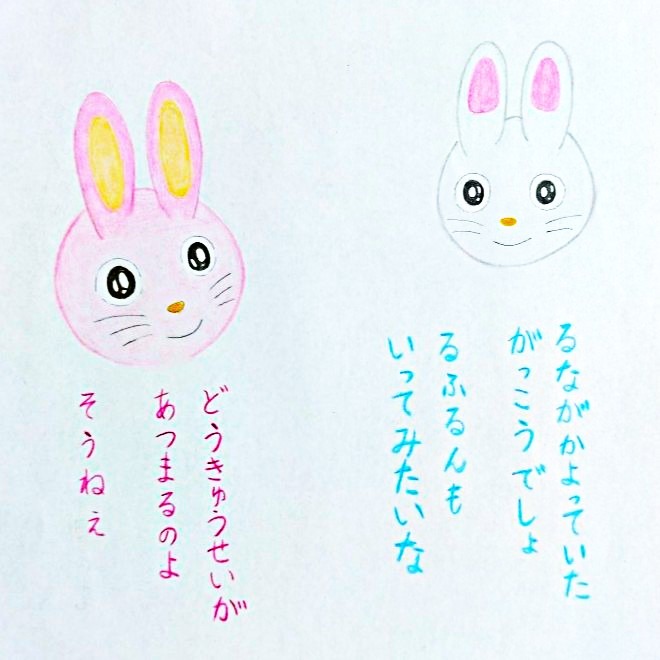 るながかよっていた
がっこうでしょ
るふるんも
いってみたいな
どうきゅうせいが
あつまるのよ
そうねぇ